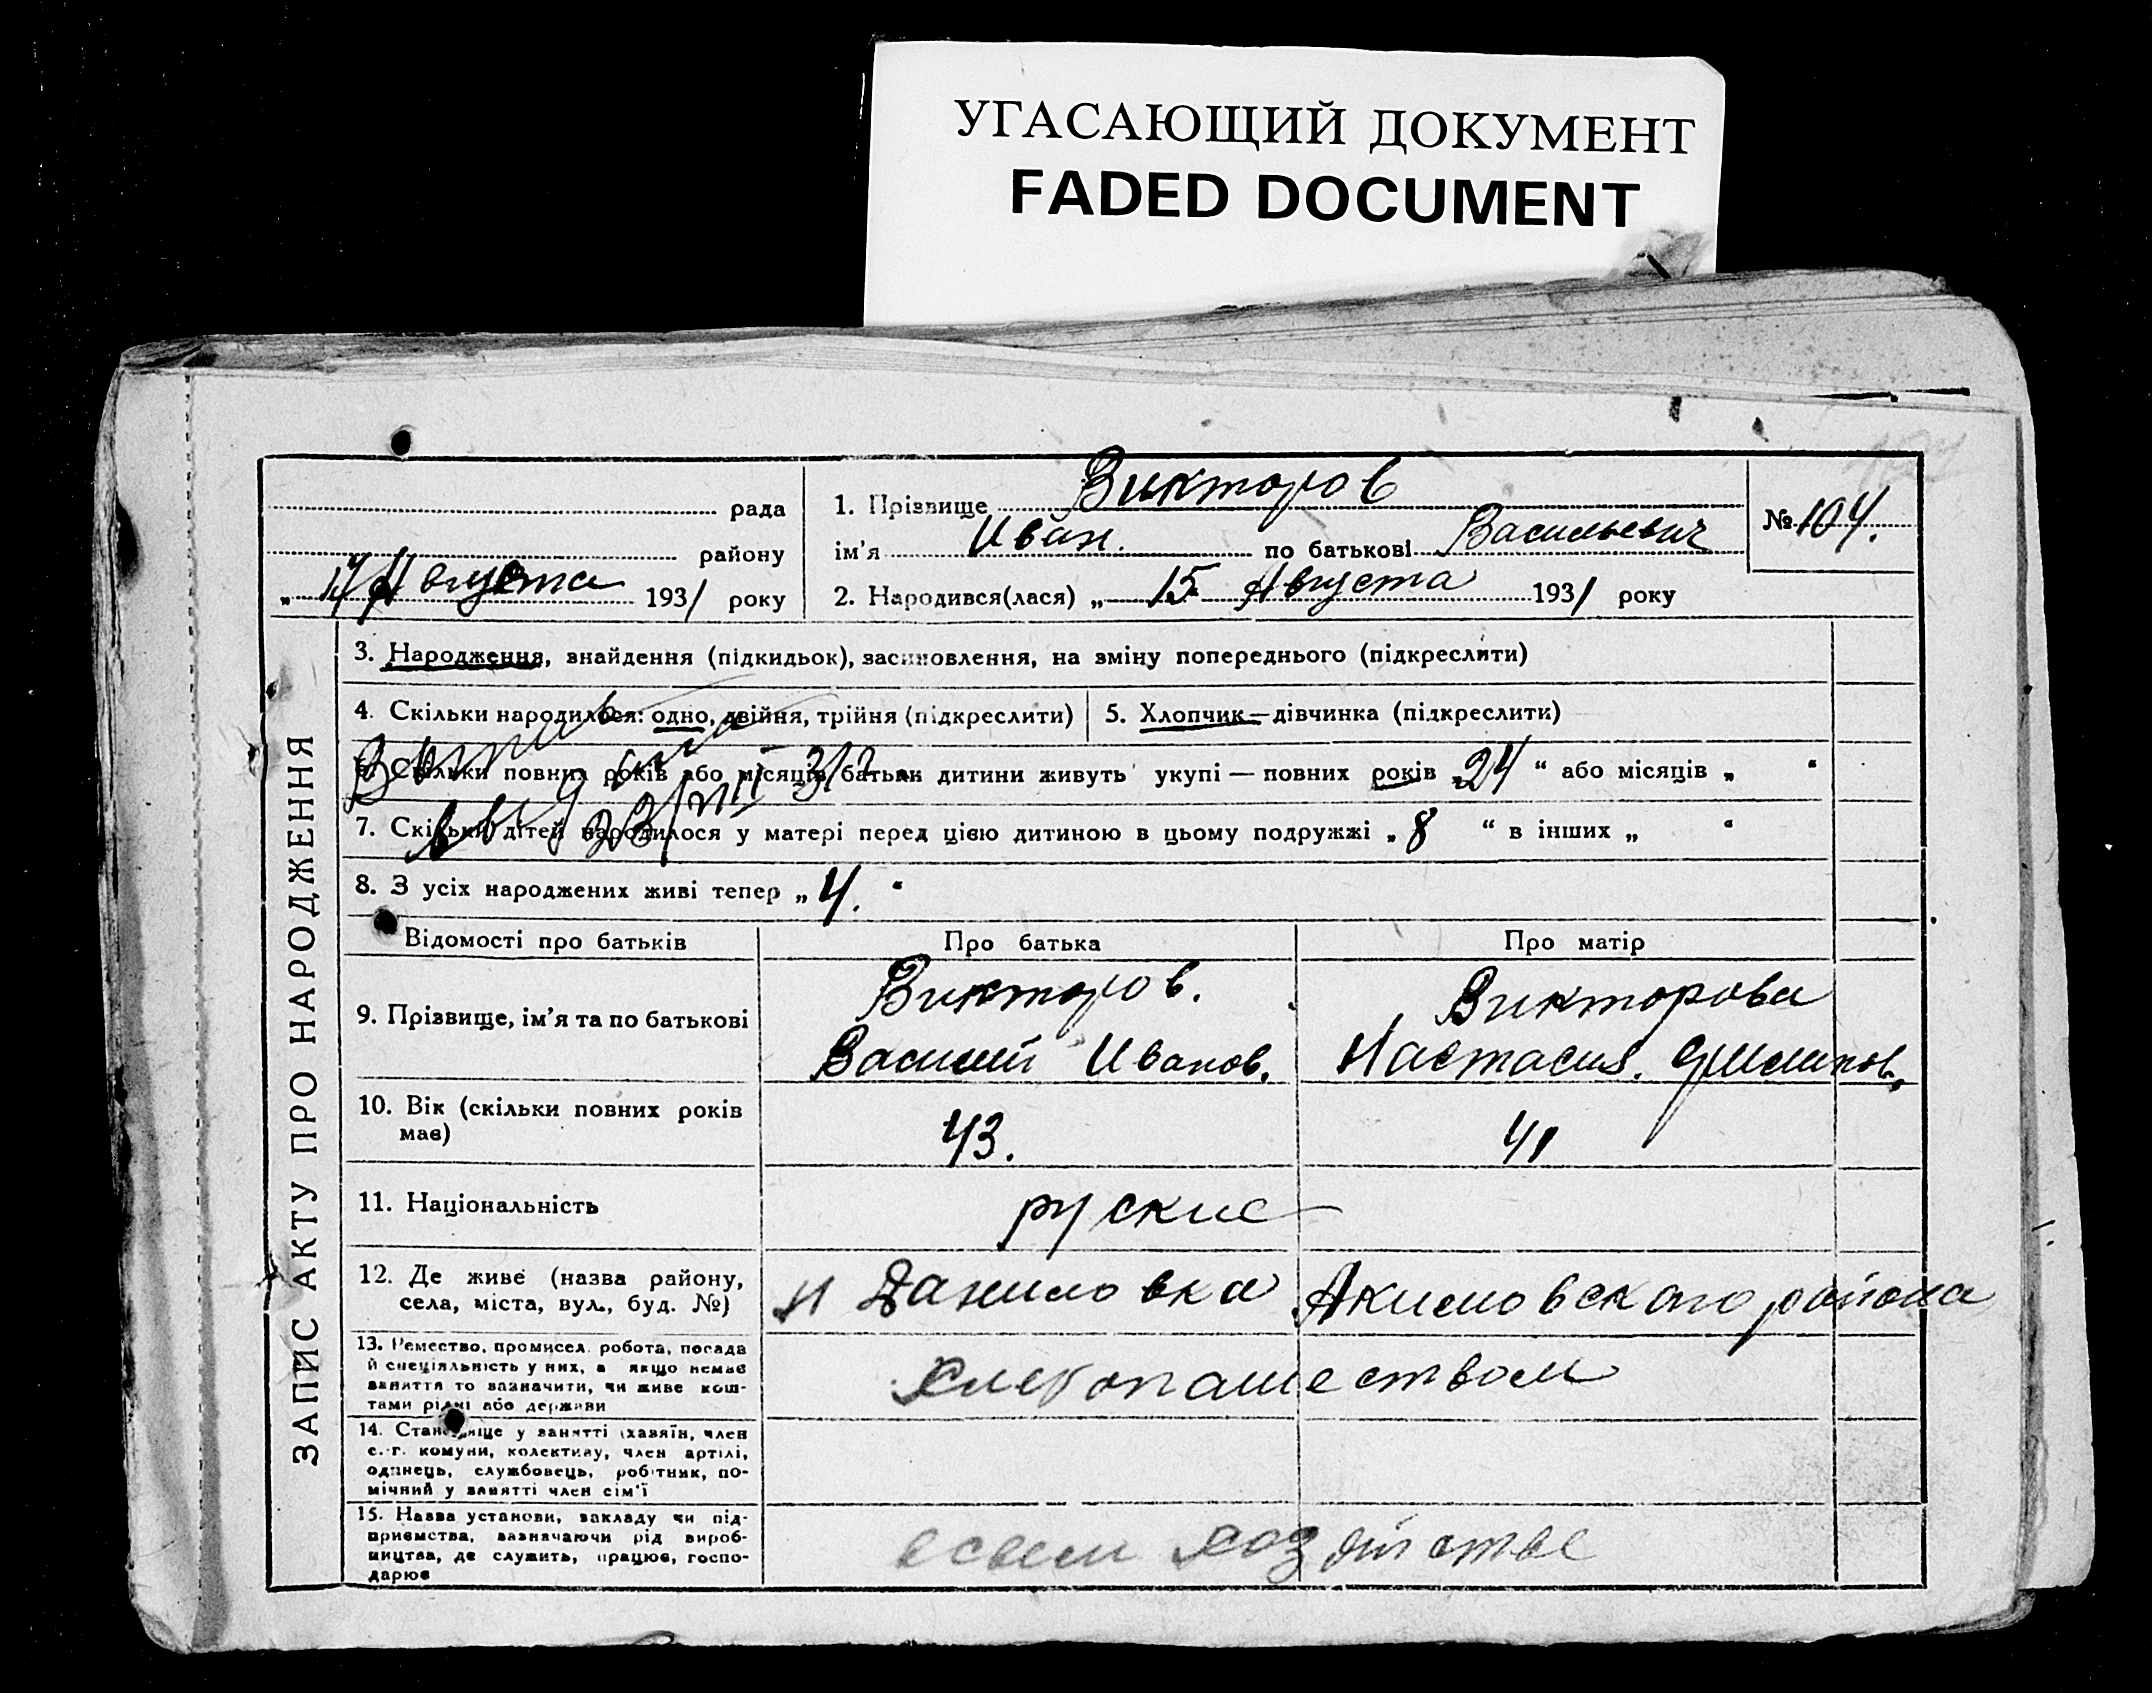 УГАСАЮЩИЙ ДОКУМЕНТ
FADED DOCUMENT
рада
району
„ 17 Августа 1931 року
1. Прізвище Викторов
ім’я Иван. по батькові Васильевич
№ 104.
2. Народився(лася) „ 15 Августа 1931 року
ЗАПИС АКТУ ПРО НАРОДЖЕННЯ
3. Народження, знайдення (підкидьок), засиновлення, на зміну попереднього (підкреслити)
4. Скільки народилося: одно, двійня, трійня (підкреслити)
5. Хлопчик—дівчинка (підкреслити)
6. Скільки повних років або місяців батьки дитини живуть укупі — повних років „ 24 “ або місяців „ “
7. Скільки дітей народилося у матері перед цією дитиною в цьому подружжі „ 8 “ в інших „ “
23/VIII 31
8. З усіх народжених живі тепер „ 4. “
Відомості про батьків
Про батька
Про матір
9. Прізвище, ім’я та по батькові
Викторов.
Василий Иванов.
Викторова
Настасия.
10. Вік (скільки повних років
має)
43.
41
11. Національність
руские
12. Де живе (назва району,
села, міста, вул., буд. №)
Даниловка Акимовского района
13. Ремество, промисел, робота, посада
й спеціяльність у них, а якщо немає
заняття то зазначити, чи живе кош-
тами рідні або держави
хлебопашеством
14. Становище у занятті (хазяїн, член
с.-г. комуни, колективу, член артілі,
одинець, службовець, робітник, по-
мічний у занятті член сім’ї
15. Назва установи, закладу чи під-
приємства, зазначаючи рід вироб-
ництва, де служить, працює, госпо-
дарює
всвем хозяйстве